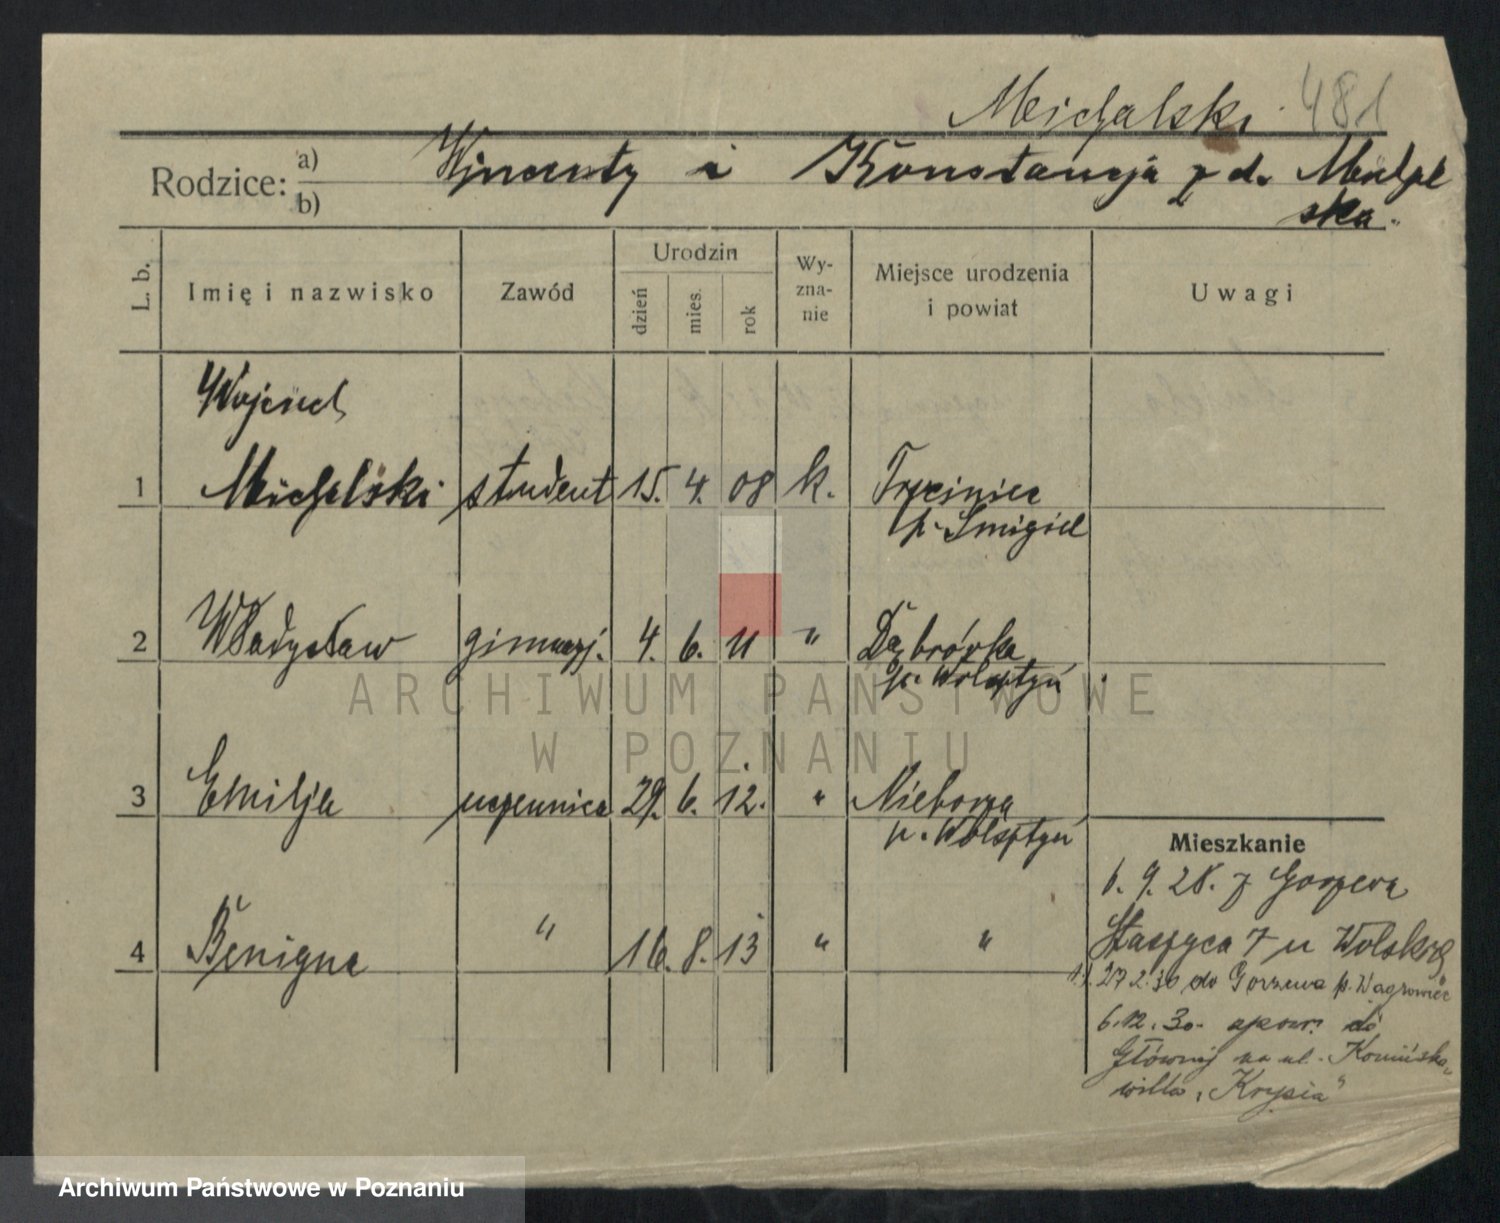 Michalski 481
Rodzice: a) b) Wincenty i Konstancja z d. Michal
ska.
L. b. Imię i nazwisko Zawód Urodzin dzień mies. rok Wy-zna-nie Miejsce urodzenia i powiat Uwagi
Wojciech
1 Michalski student 15. 4. 08 k. Trzcinica
p. Śmigiel
2 Władysław gimnazj. 4. 6. 11 " Dąbrówka
p. Wolsztyn
3 Emilja uczennica 29. 6. 12. " Nieborza
p. Wolsztyn
Mieszkanie
6. 9. 28. z Gorzewa
4 Benigna " 16. 8. 13 " " Staszyca 7 u Wolskiej
27.2.30 do Gorzewa p. Wągrowiec
6.12.30. spow. do
Głównej na ul. Komińska
willa „Krysia"
ARCHIWUM PAŃSTWOWE
W POZNANIU
Archiwum Państwowe w Poznaniu